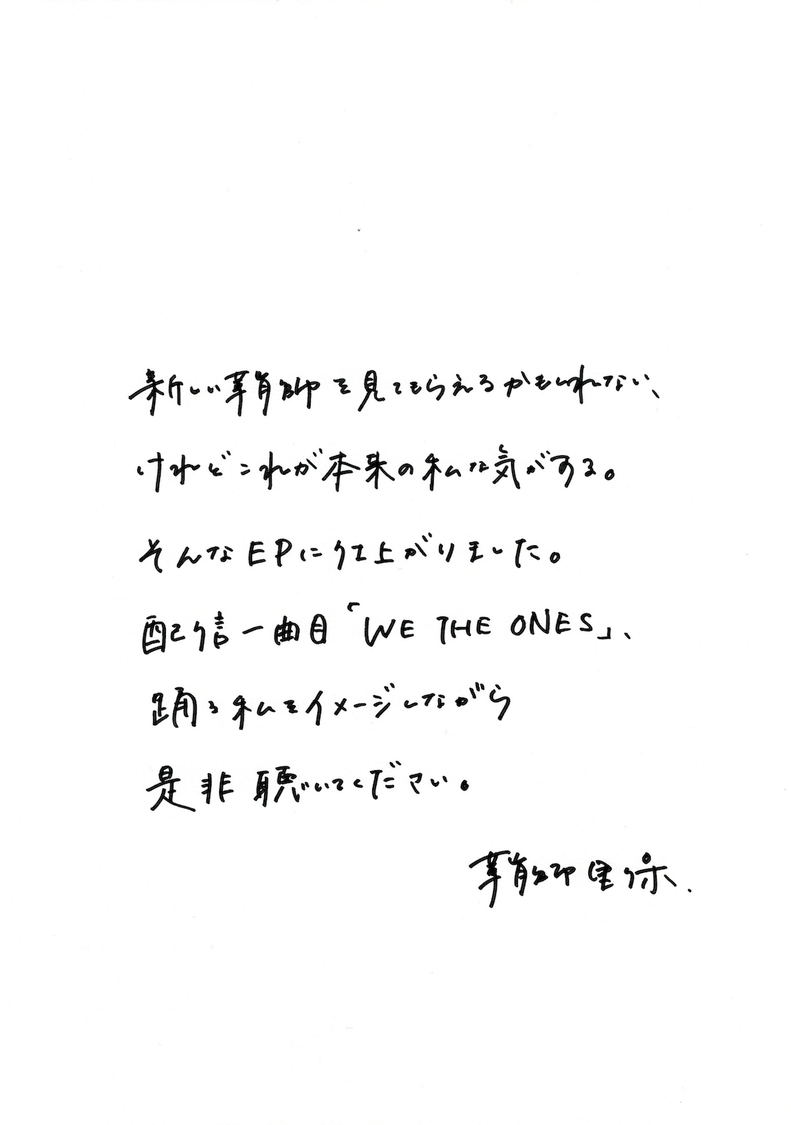 新しい鞘師を見てもらえるかもしれない、
けれどこれが本来の私な気がする。
そんなEPに仕上がりました。
配信一曲目「WE THE ONES」、
踊る私をイメージしながら
是非聴いてください。
鞘師里保.